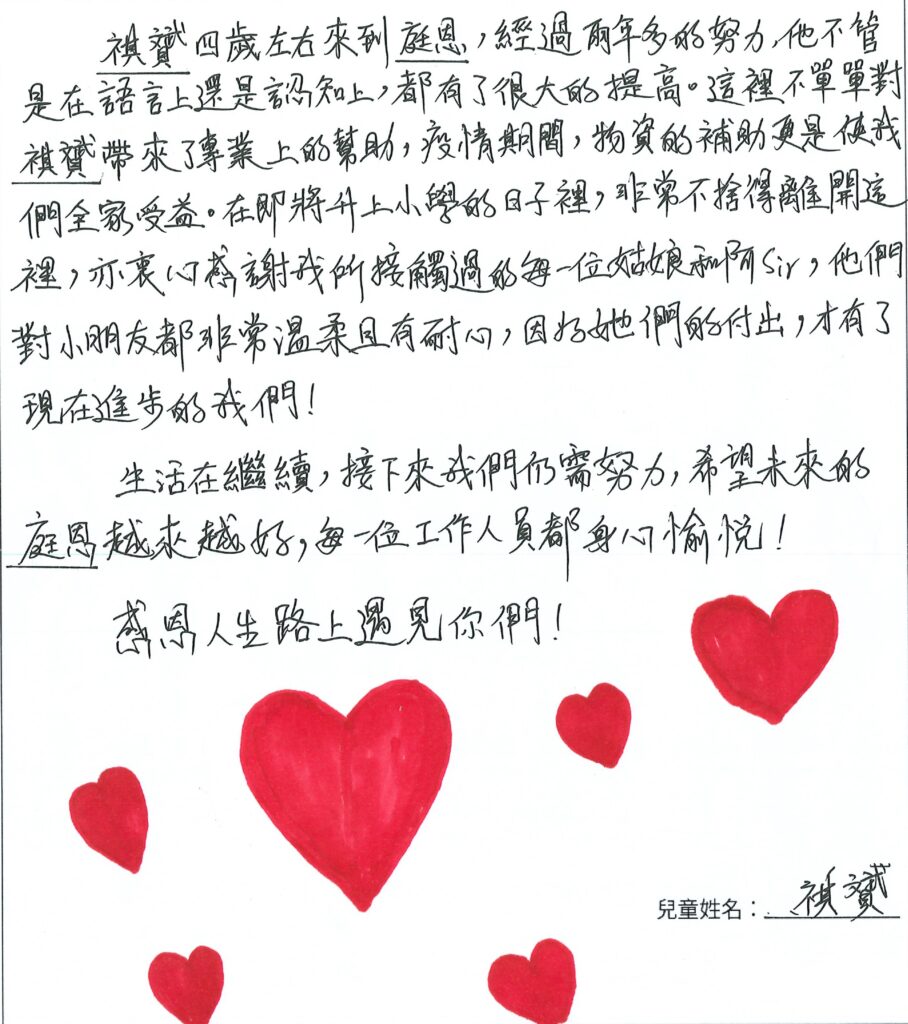 祺贇四歲左右來到庭恩，經過兩年多的努力，他不管
是在語言上還是認知上，都有了很大的提高。這裡不單單對
祺贇帶來了專業上的幫助，疫情期間，物資的補助更是使我
們全家受益。在即將升上小學的日子裡，非常不捨得離開這
裡，亦衷心感謝我所接觸過的每一位姑娘和阿Sir，他們
對小朋友都非常溫柔且有耐心，因為她們的付出，才有了
現在進步的我們！
生活在繼續，接下來我們仍需努力，希望未來的
庭恩越來越好，每一位工作人員都身心愉悅！
感恩人生路上遇見你們！
兒童姓名：祺贇